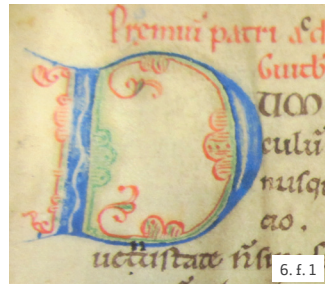 Premiu͛ patri ac d
Guitb
D
um
culū
nusq
cio.
uetustate
6. f. 1